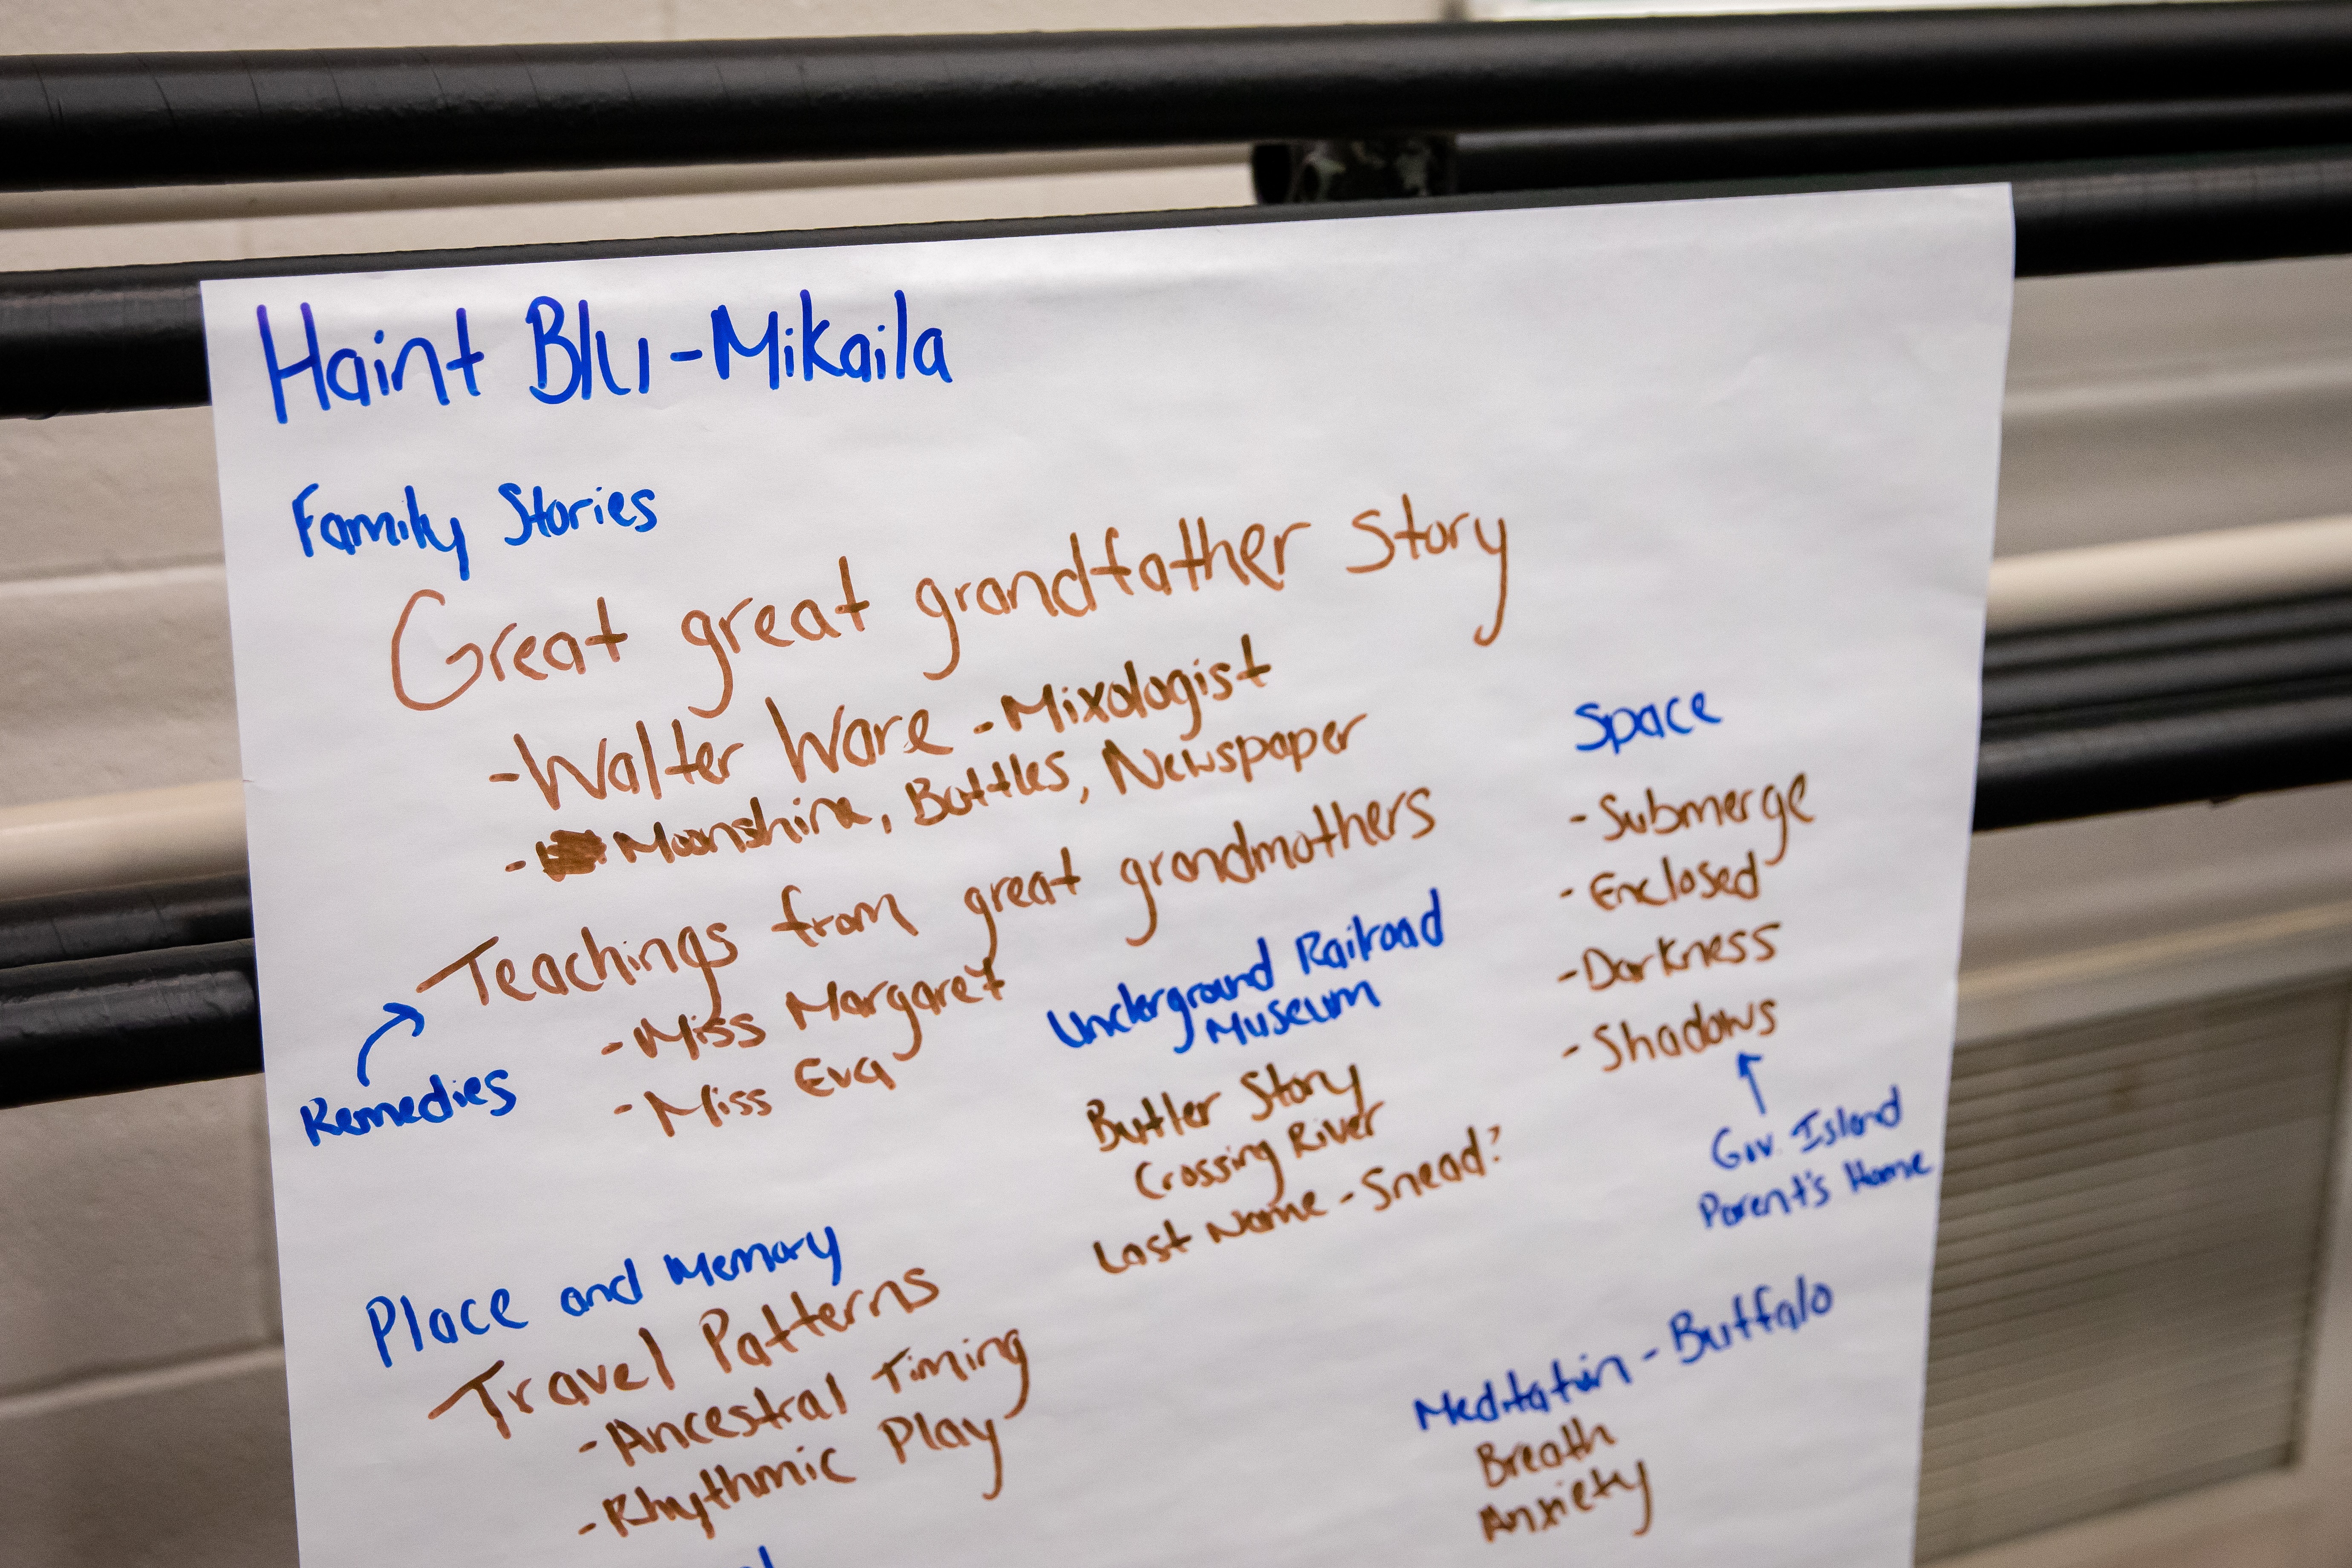 Haint Blu - Mikaila
Family Stories
Great great grandfather Story
- Walter Ware - Mixologist
- Moonshine, Bottles, Newspaper
Teachings from great grandmothers
- Miss Margaret
- Miss Eva
Remedies
Underground Railroad
Museum
Butler Story
Crossing River
Last Name - Snead?
Space
- Submerge
- Enclosed
- Darkness
- Shadows
Gov. Island
Parent's Home
Place and Memory
Travel Patterns
- Ancestral Timing
- Rhythmic Play
Meditation - Buffalo
Breath
Anxiety